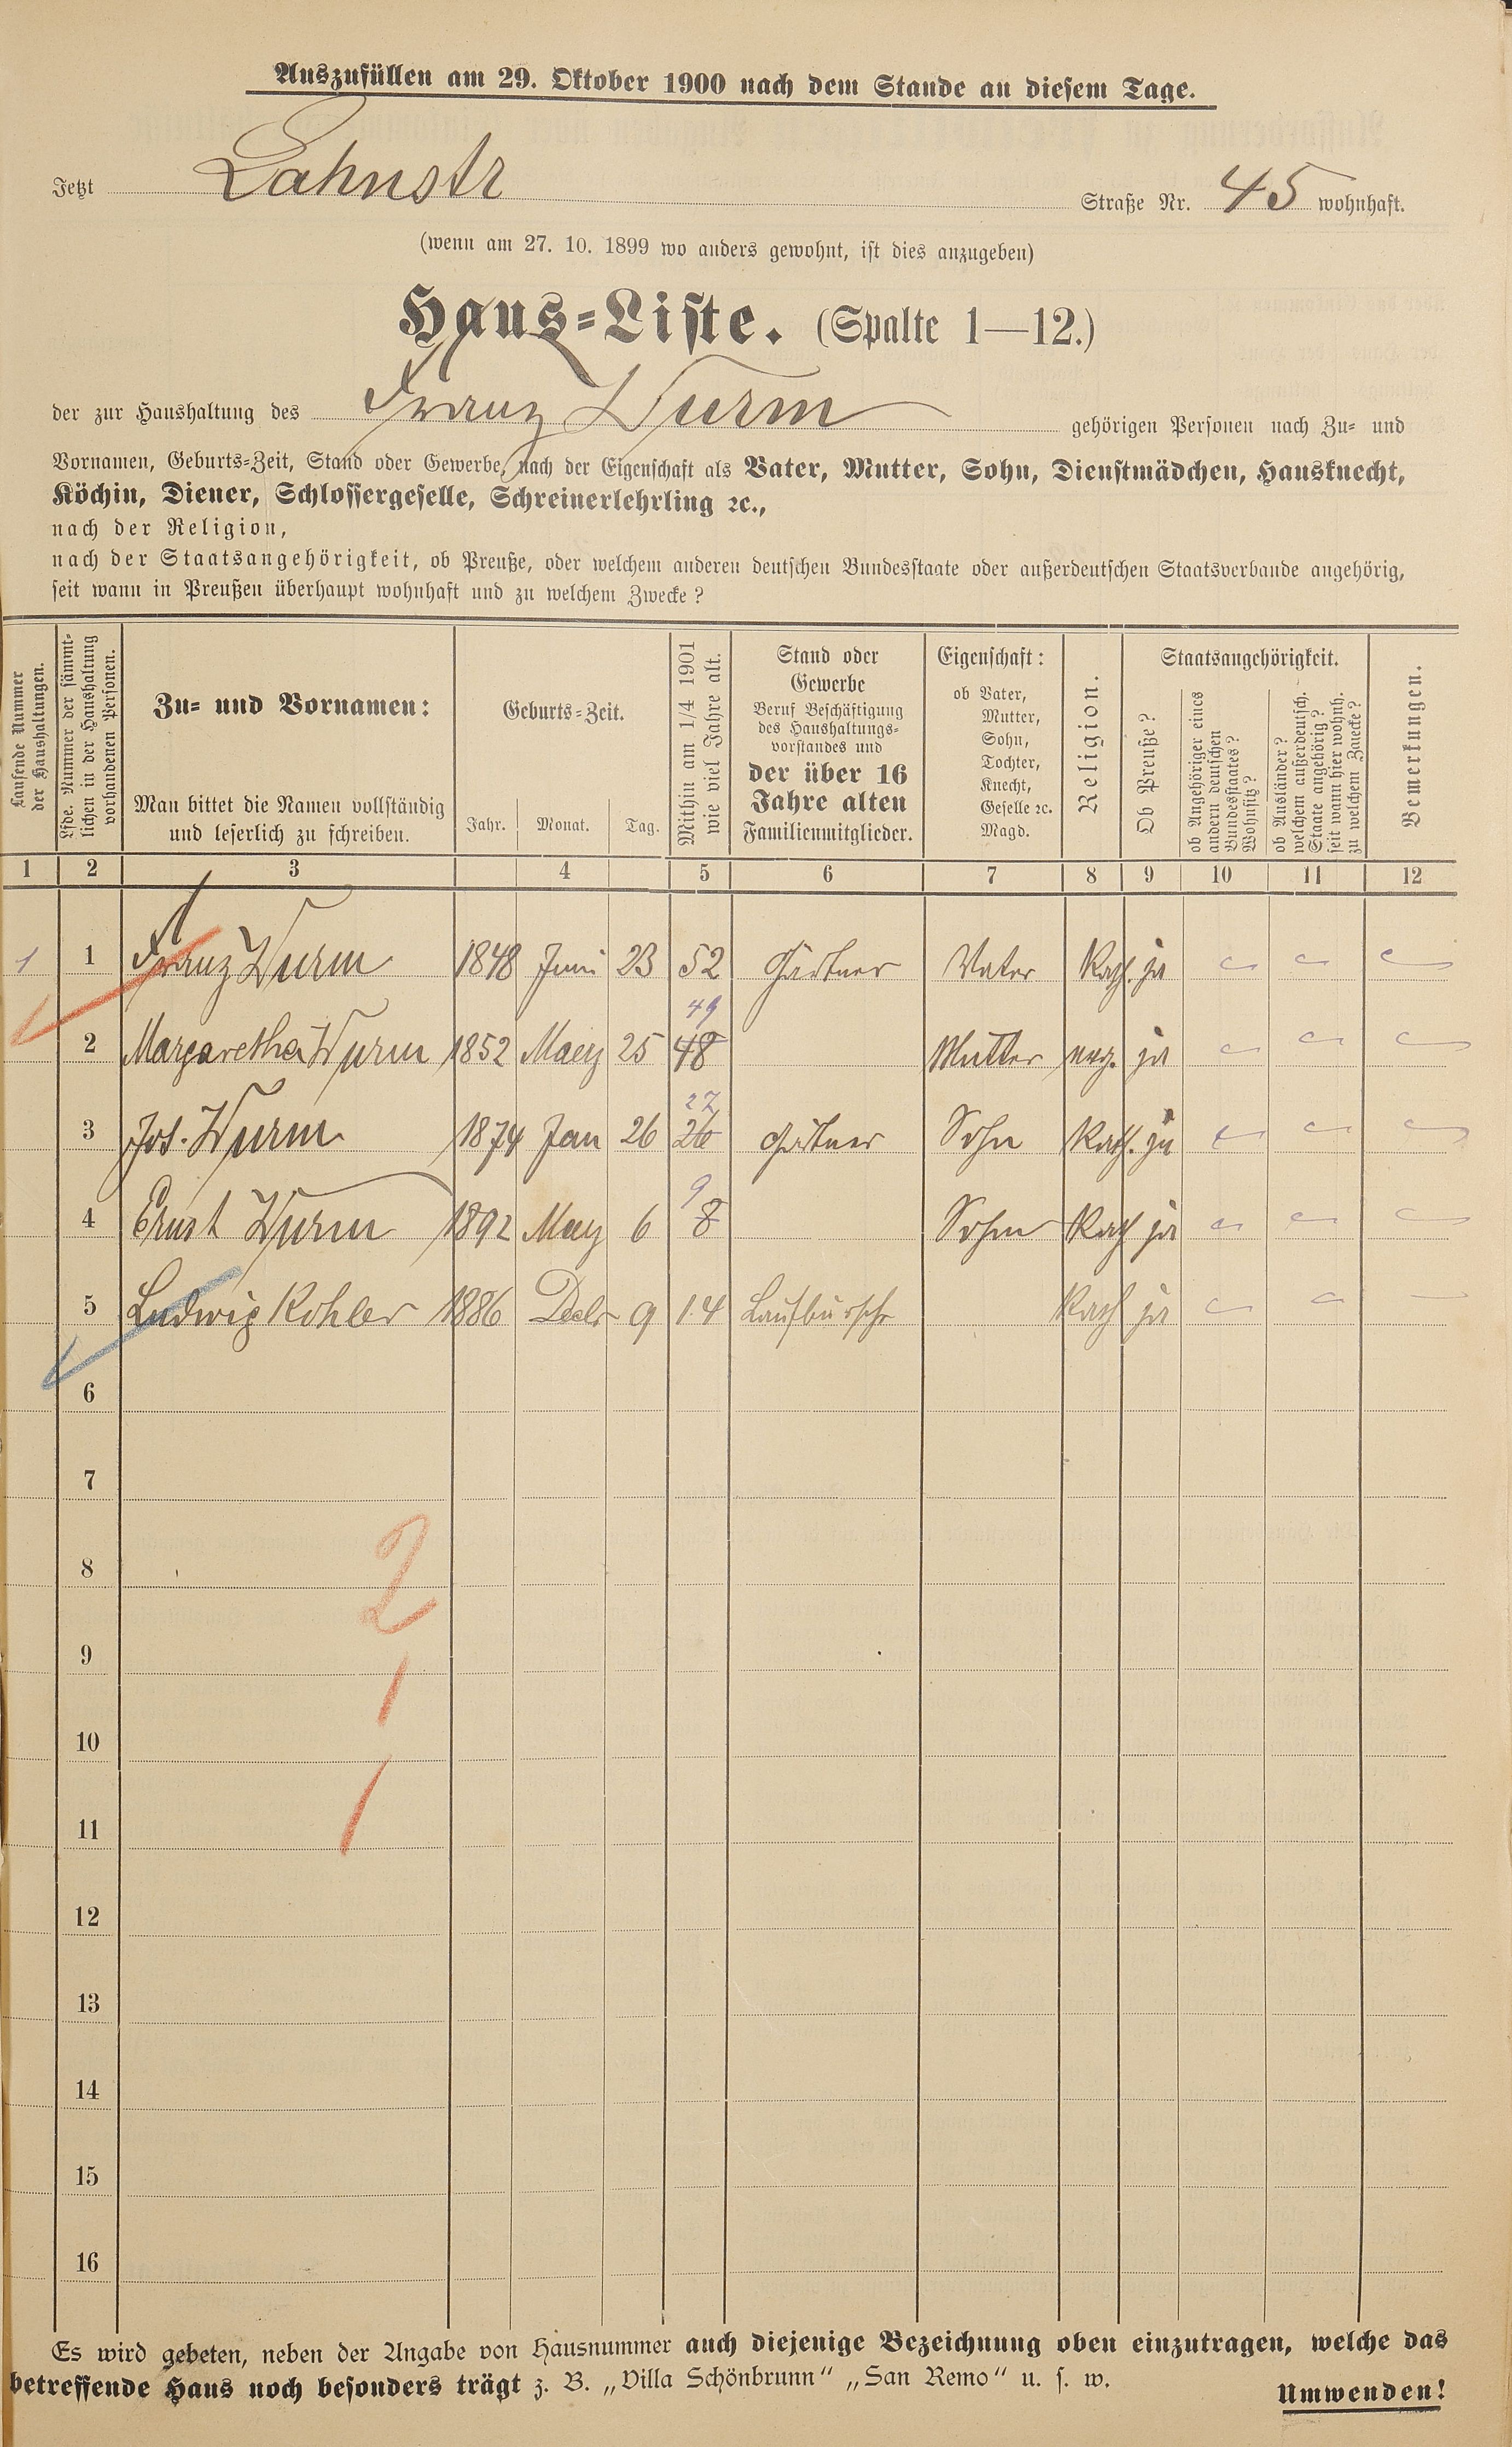 Auszufüllen am 29. Oktober 1900 nach dem Stande an diesem Tage.
Jetzt Lahnstr Straße Nr. 45 wohnhaft.
(wenn am 27. 10. 1899 wo anders gewohnt, ist dies anzugeben)
Haus-Liste. (Spalte 1—12.)
der zur Haushaltung des Franz Wurm gehörigen Personen nach Zu- und
Vornamen, Geburts-Zeit, Stand oder Gewerbe, nach der Eigenschaft als Vater, Mutter, Sohn, Dienstmädchen, Hausknecht,
Köchin, Diener, Schlossergeselle, Schreinerlehrling ꝛc.,
nach der Religion,
nach der Staatsangehörigkeit, ob Preuße, oder welchem anderen deutschen Bundesstaate oder außerdeutschen Staatsverbande angehörig,
seit wann in Preußen überhaupt wohnhaft und zu welchem Zwecke?
Laufende Nummer
der Haushaltungen.
Lfde. Nummer der sämmt-
lichen in der Haushaltung
vorhandenen Personen.
Zu- und Vornamen:
Man bittet die Namen vollständig
und leserlich zu schreiben.
Geburts-Zeit.
Jahr. Monat. Tag.
Mithin am 1/4 1901
wie viel Jahre alt.
Stand oder
Gewerbe
Beruf Beschäftigung
des Haushaltungs-
vorstandes und
der über 16
Jahre alten
Familienmitglieder.
Eigenschaft:
ob Vater,
Mutter,
Sohn,
Tochter,
Knecht,
Geselle ꝛc.
Magd.
Religion.
Staatsangehörigkeit.
Ob Preuße?
ob Angehöriger eines
andern deutschen
Bundesstaates?
Wohnsitz?
ob Ausländer?
welchem außerdeutsch.
Staate angehörig?
seit wann hier wohnh.
zu welchem Zwecke?
Bemerkungen.
1 2 3 4 5 6 7 8 9 10 11 12
1 1 Franz Wurm 1848 Juni 23 52 Gärtner Vater Kath. ja
49
2 Margaretha Wurm 1852 Maerz 25 48 Mutter evg. ja
27
3 Jos. Wurm 1874 Jan 26 26 Gärtner Sohn Kath. ja
9
4 Ernst Wurm 1892 Maerz 6 8 Sohn Kath ja
5 Ludwig Kohler 1886 Decbr 9 14 Laufbursche Kath ja
6
7
8
2
9
1
10
11
1
12
13
14
15
16
Es wird gebeten, neben der Angabe von Hausnummer auch diejenige Bezeichnung oben einzutragen, welche das
betreffende Haus noch besonders trägt z. B. „Villa Schönbrunn“ „San Remo“ u. s. w.
Umwenden!